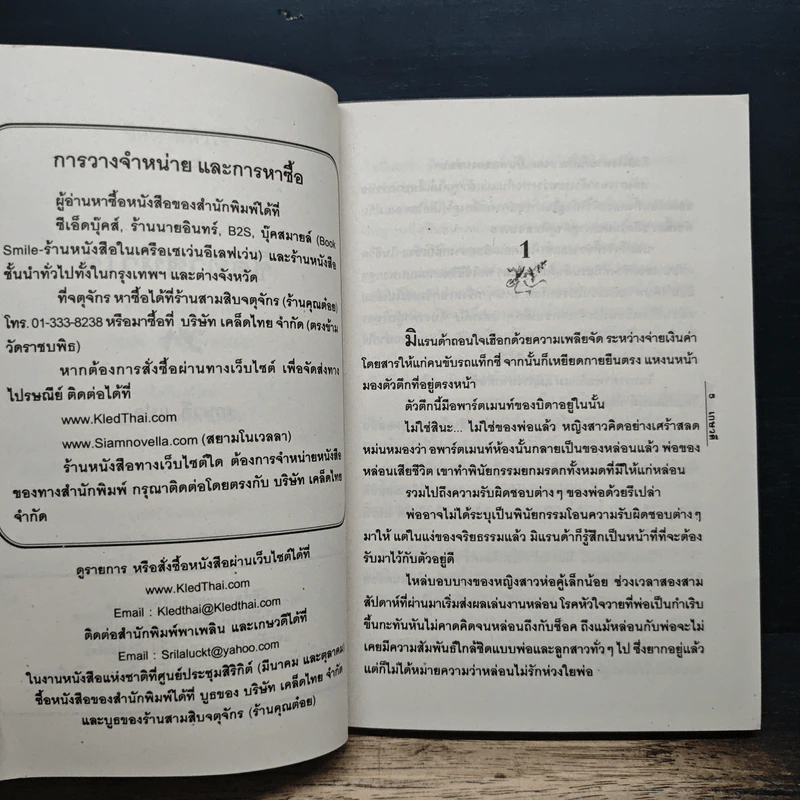 การวางจำหน่าย และการหาซื้อ
ผู้อ่านหาซื้อหนังสือของสำนักพิมพ์ได้ที่
ซีเอ็ดบุ๊คส์, ร้านนายอินทร์, B2S, บุ๊คสมายล์ (Book
Smile-ร้านหนังสือในเครือเซเว่นอีเลฟเว่น) และร้านหนังสือ
ชั้นนำทั่วไปทั้งในกรุงเทพฯ และต่างจังหวัด
ที่จตุจักร หาซื้อได้ที่ร้านสามสิบจตุจักร (ร้านคุณต๋อย)
โทร. 01-333-8238 หรือมาซื้อที่ บริษัท เคล็ดไทย จำกัด (ตรงข้าม
วัดราชบพิธ)
หากต้องการสั่งซื้อผ่านทางเว็บไซต์ เพื่อจัดส่งทาง
ไปรษณีย์ ติดต่อได้ที่
www.KledThai.com
www.Siamnovella.com (สยามโนเวลลา)
ร้านหนังสือทางเว็บไซต์ใด ต้องการจำหน่ายหนังสือ
ของทางสำนักพิมพ์ กรุณาติดต่อโดยตรงกับ บริษัท เคล็ดไทย
จำกัด
ดูรายการ หรือสั่งซื้อหนังสือผ่านเว็บไซต์ได้ที่
www.KledThai.com
Email : Kledthai@Kledthai.com
ติดต่อสำนักพิมพ์พาเพลิน และเกษวดีได้ที่
Email : Srilaluckt@yahoo.com
ในงานหนังสือแห่งชาติที่ศูนย์ประชุมสิริกิต์ (มีนาคม และตุลาคม)
ซื้อหนังสือของสำนักพิมพ์ได้ที่ บูธของ บริษัท เคล็ดไทย จำกัด
และบูธของร้านสามสิบจตุจักร (ร้านคุณต๋อย)
1
มิแรนด้าถอนใจเฮือกด้วยความเพลียจัด ระหว่างจ่ายเงินค่า
โดยสารให้แก่คนขับรถแท็กซี่ จากนั้นก็เหยียดกายยืนตรง แหงนหน้า
มองตัวตึกที่อยู่ตรงหน้า
ตัวตึกนี้มีอพาร์ตเมนท์ของบิดาอยู่ในนั้น
ไม่ใช่สินะ... ไม่ใช่ของพ่อแล้ว หญิงสาวคิดอย่างเศร้าสลด
หม่นหมองว่า อพาร์ตเมนท์ห้องนั้นกลายเป็นของหล่อนแล้ว พ่อของ
หล่อนเสียชีวิต เขาทำพินัยกรรมยกมรดกทั้งหมดที่มีให้แก่หล่อน
รวมไปถึงความรับผิดชอบต่างๆ ของพ่อด้วยรึเปล่า
พ่ออาจไม่ได้ระบุเป็นพินัยกรรมโอนความรับผิดชอบต่างๆ
มาให้ แต่ในแง่ของจริยธรรมแล้ว มิแรนด้าก็รู้สึกเป็นหน้าที่ที่จะต้อง
รับมาไว้กับตัวอยู่ดี
ไหล่บอบบางของหญิงสาวห่อคู้เล็กน้อย ช่วงเวลาสองสาม
สัปดาห์ที่ผ่านมาเริ่มส่งผลเล่นงานหล่อน โรคหัวใจวายที่พ่อเป็นกำเริบ
ขึ้นกะทันหันไม่คาดคิดจนหล่อนถึงกับช็อค ถึงแม้หล่อนกับพ่อจะไม่
เคยมีความสัมพันธ์ใกล้ชิดแบบพ่อและลูกสาวทั่วๆ ไป ซึ่งยากอยู่แล้ว
แต่ก็ไม่ได้หมายความว่าหล่อนไม่รักห่วงใยพ่อ
5 เกษวดี